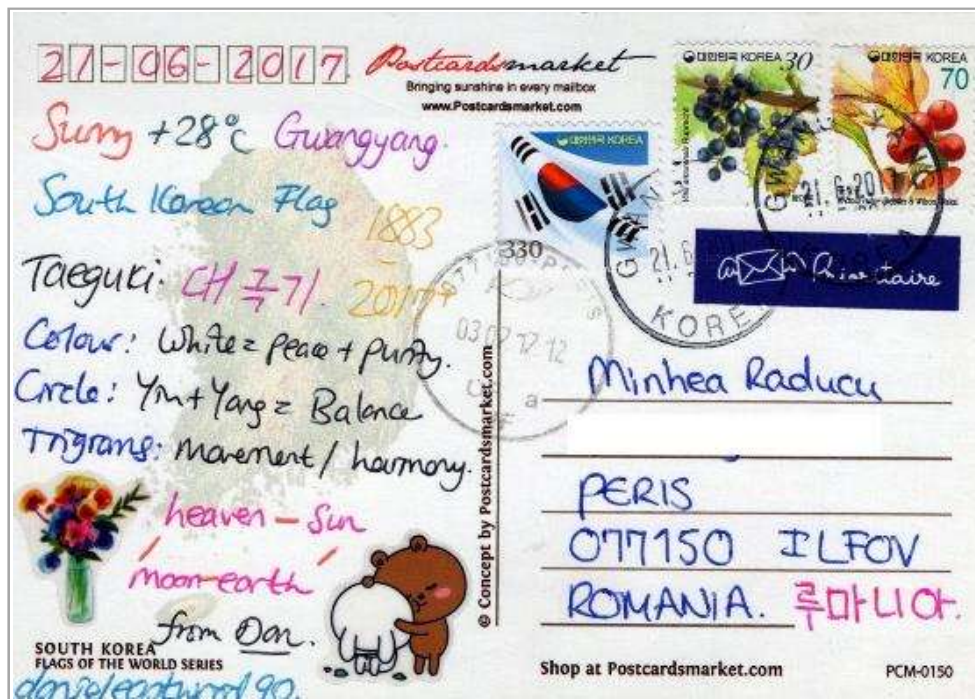 21-06-2017.
Postcardsmarket
Bringing sunshine in every mailbox
www.Postcardsmarket.com
Sunny +28°C Gwangyang.
South Korean Flag
1883
-
Taeguki: 태극기.
2017+
Colour: White = peace + purity.
Circle: Yin + Yang = Balance
Trigrams: Movement / harmony.
heaven - Sun
moon - earth
from Dan.
SOUTH KOREA
FLAGS OF THE WORLD SERIES
danieleastwood90.
© Concept by Postcardsmarket.com
대한민국 KOREA 30
대한민국 KOREA
70
대한민국 KOREA
330
21.6.2017
GWANGYANG
KOREA
21.6
KORE
03 07 17-12
a
Prioritaire
Minhea Raducu
PERIS
077150 ILFOV
ROMANIA. 루마니아.
Shop at Postcardsmarket.com
PCM-0150